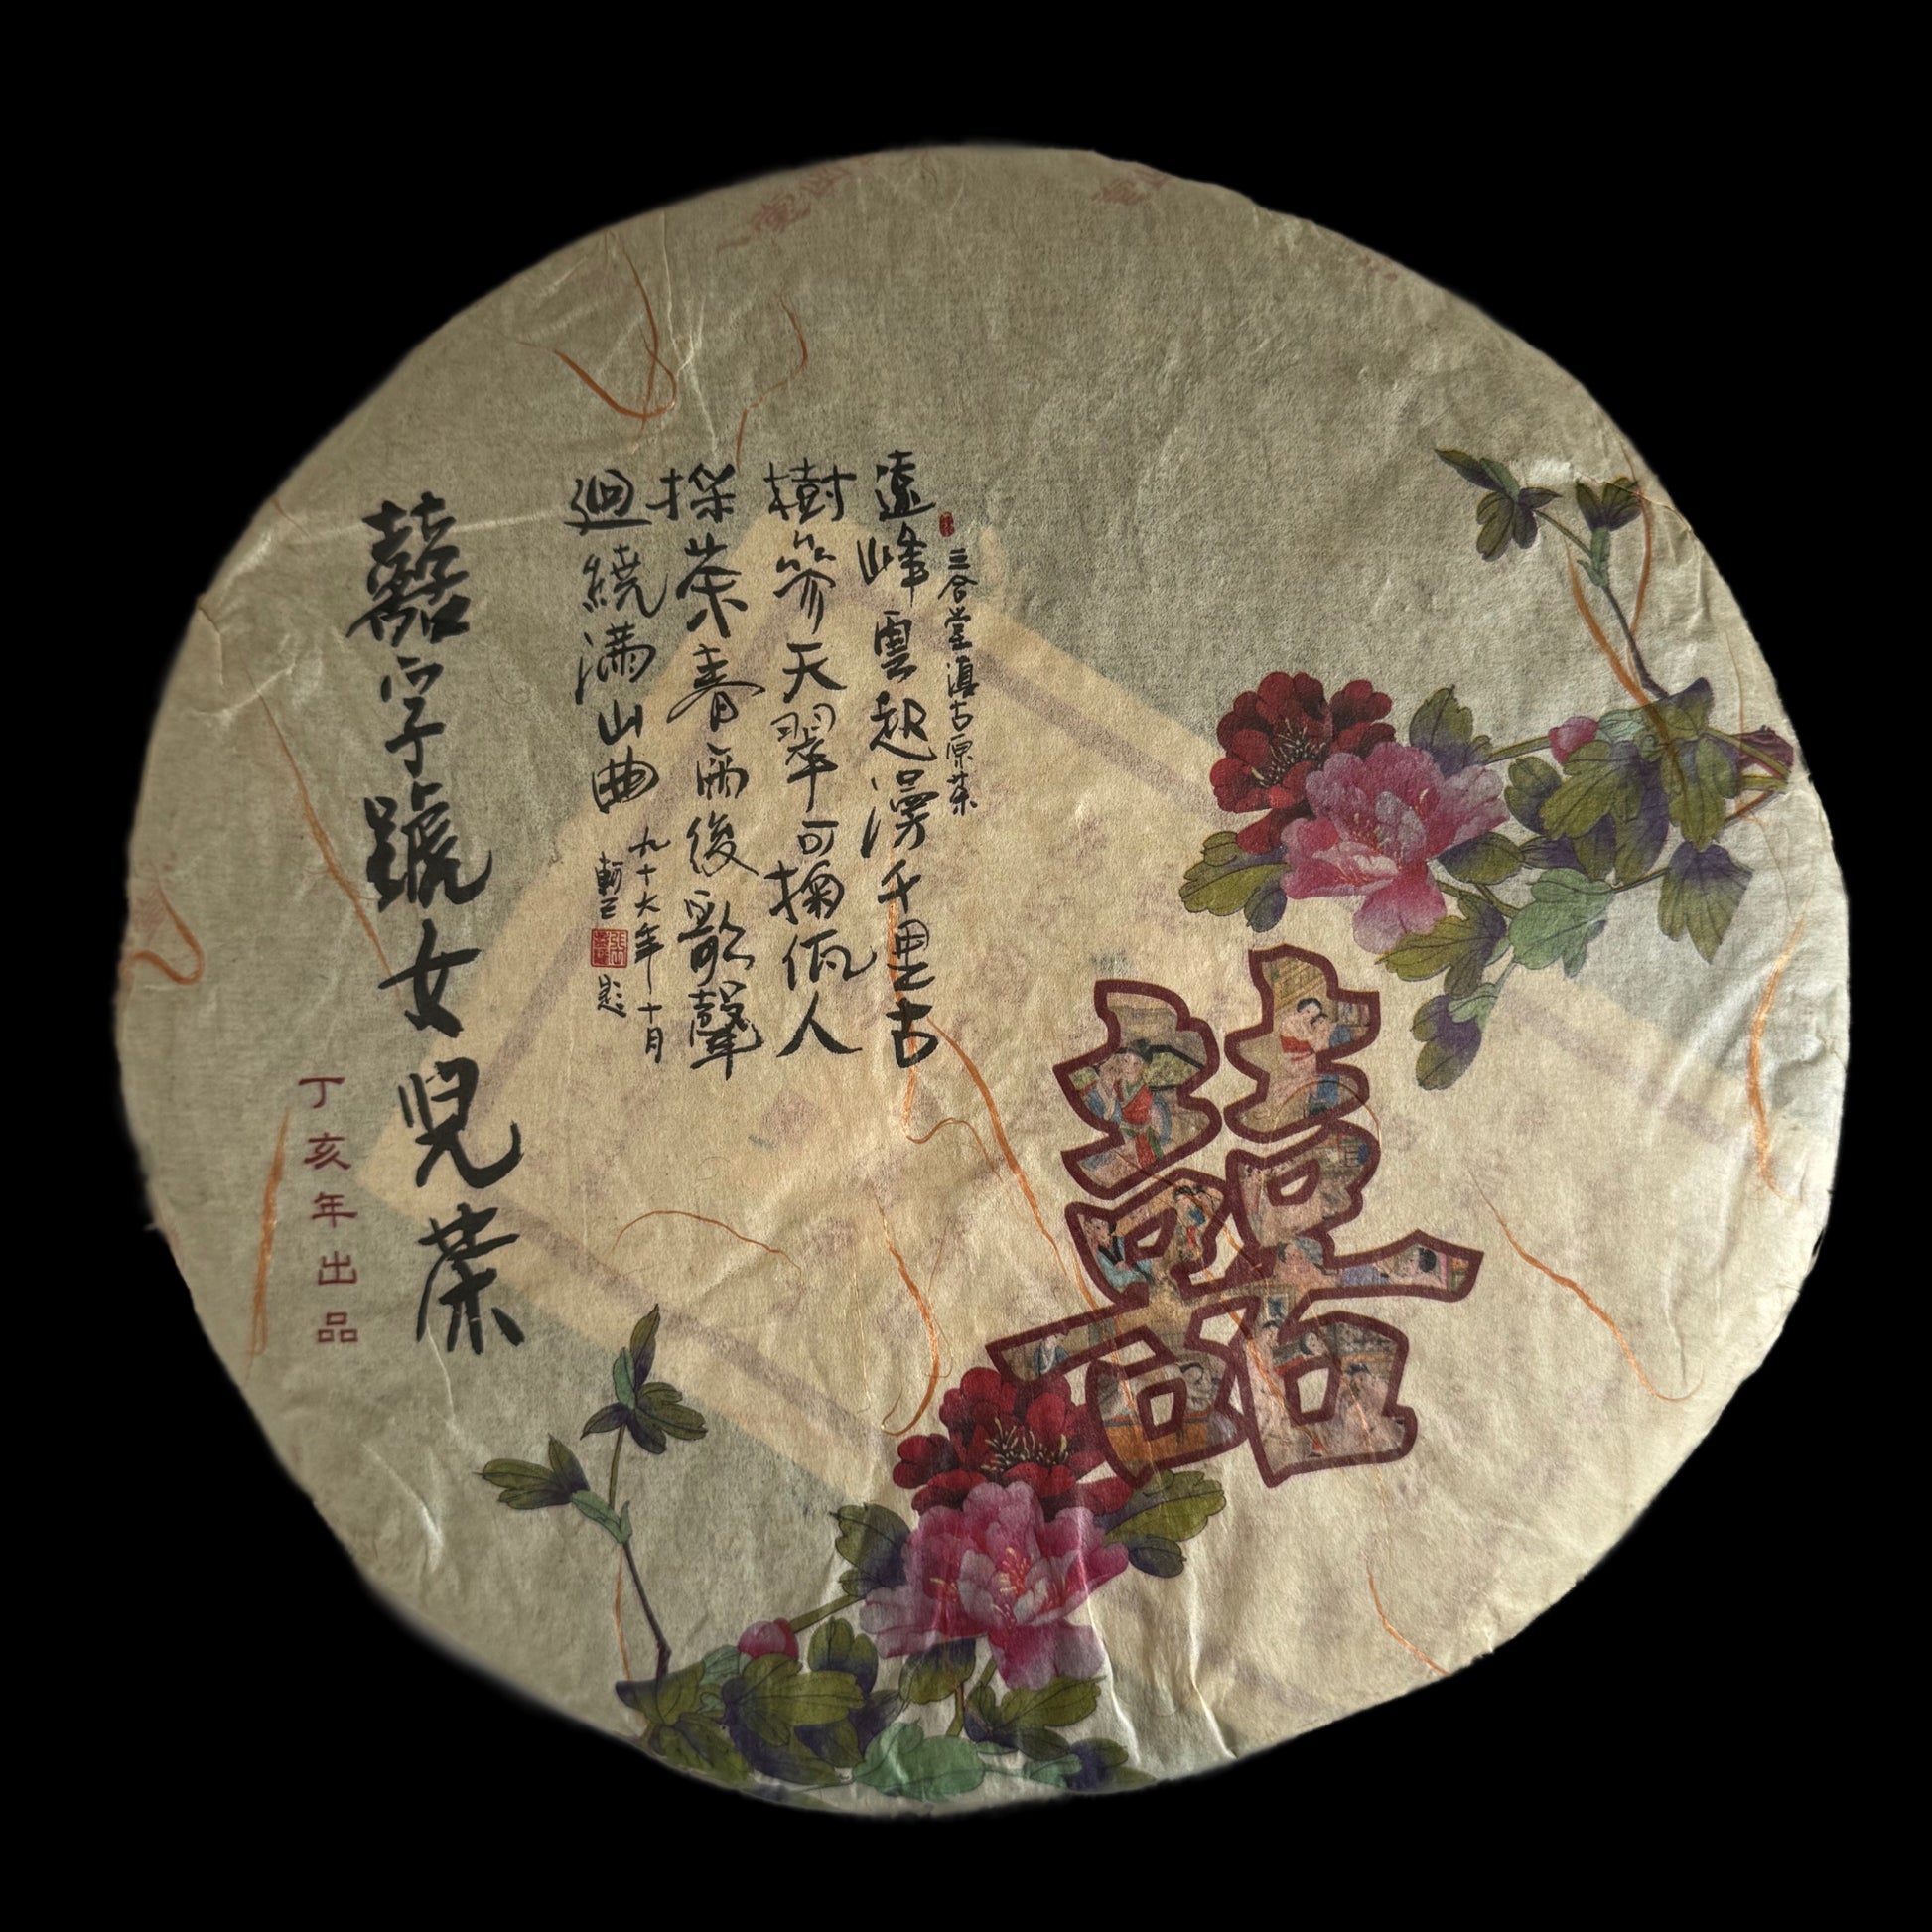 三合堂滇古原茶
遠峰雲起漫千里古
樹參天翠可掬佤人
採茶春雨後歌聲
迴繞滿山曲
九十六年十月
題
囍字號女兒茶
丁亥年出品
囍